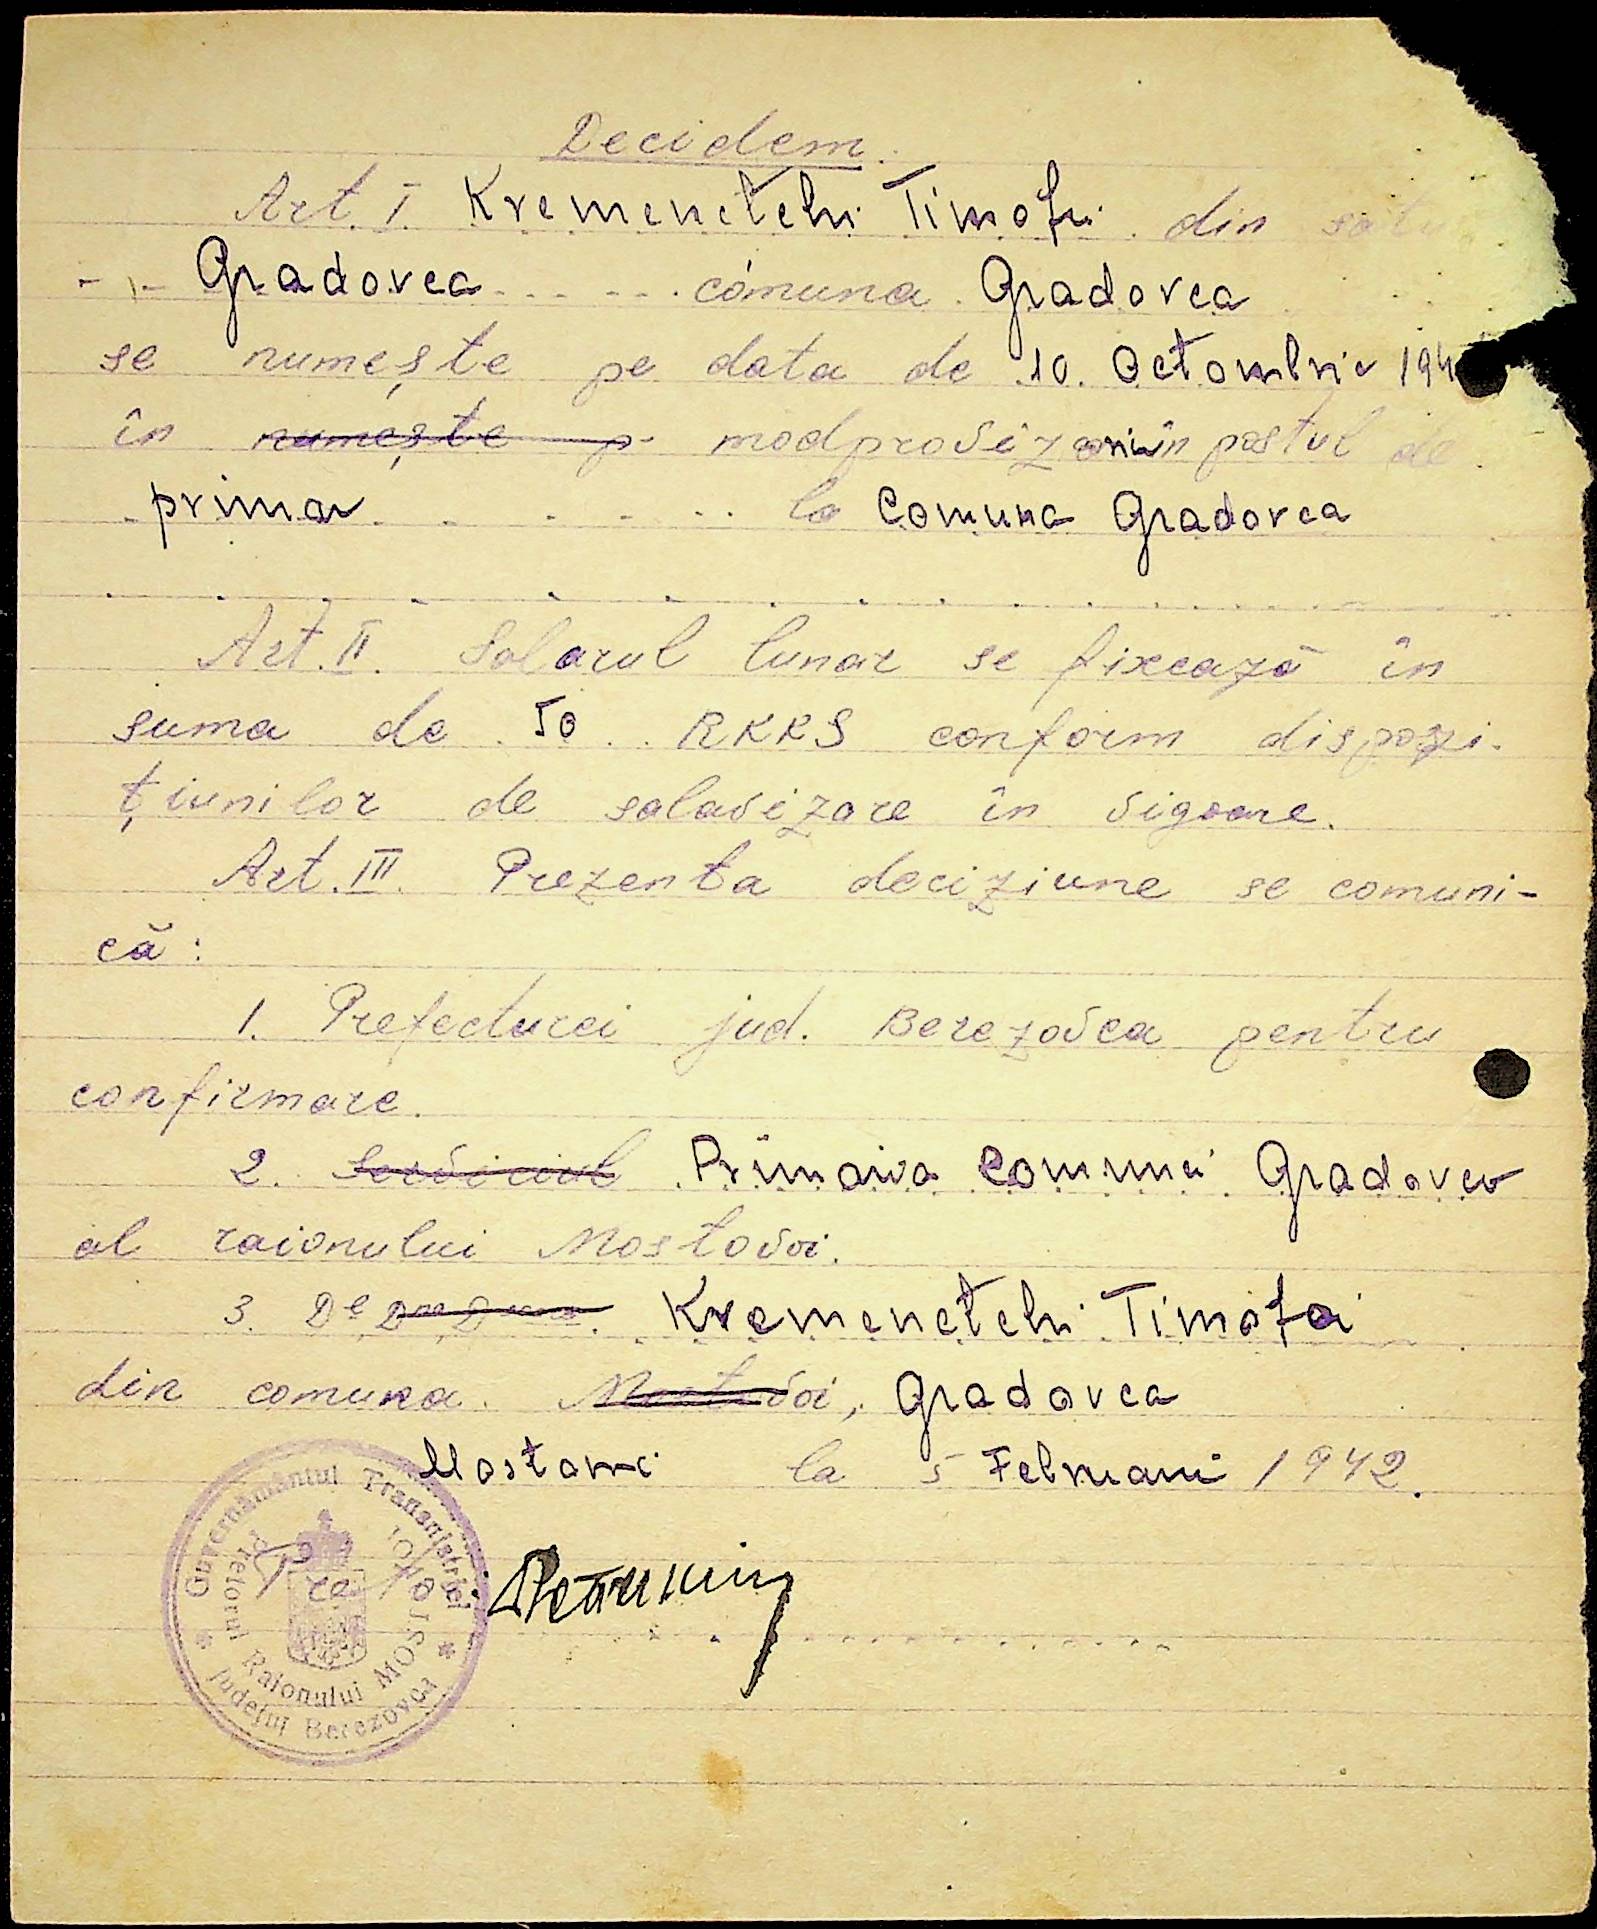 Decidem.
Art. I. Kremenetchi Timofei din satu
Gradovca comuna Gradovca
se numește pe data de 10. Octombrie 194
în numește p modprovizoriu în postul de
primar la Comuna Gradovca
Art. II. Salarul lunar se fixează în
suma de 50 RKKS conform dispozi-
țiunilor de salarizare în vigoare.
Art. III. Prezenta deciziune se comuni-
că:
1. Prefecturei jud. Berezovca pentru
confirmare.
2. Serviciul Primaria Comunei Gradovca
al raionului Mostovoi.
3. Kremenetchi Timofei
din comuna Mostovoi, Gradovca
Mostovoi la 5 Februarie 1942.
Guvernământul Transnistriei
Pretorul Raionului MOSTOVOI
Județul Berezovca